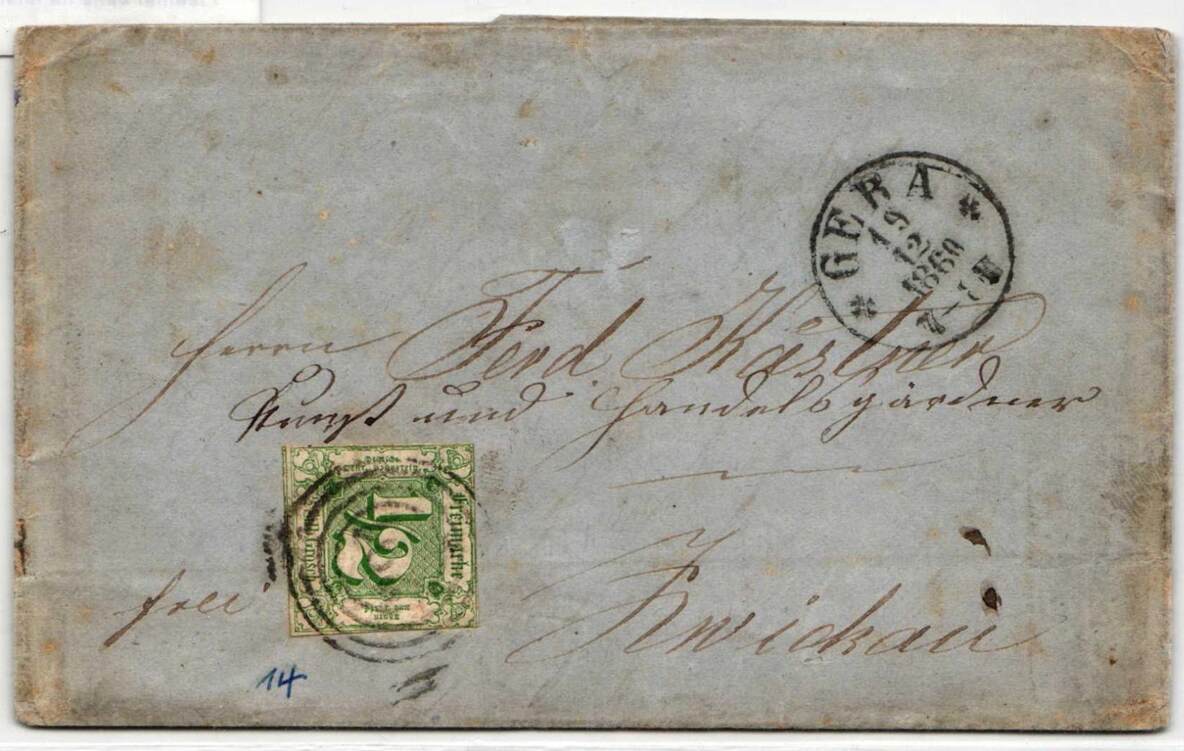 * GERA *
19
12
1860
Herrn Ferd Kästner
Kunst und Handelsgärdner
Freimarke
1/2
frei
Zwickau
14